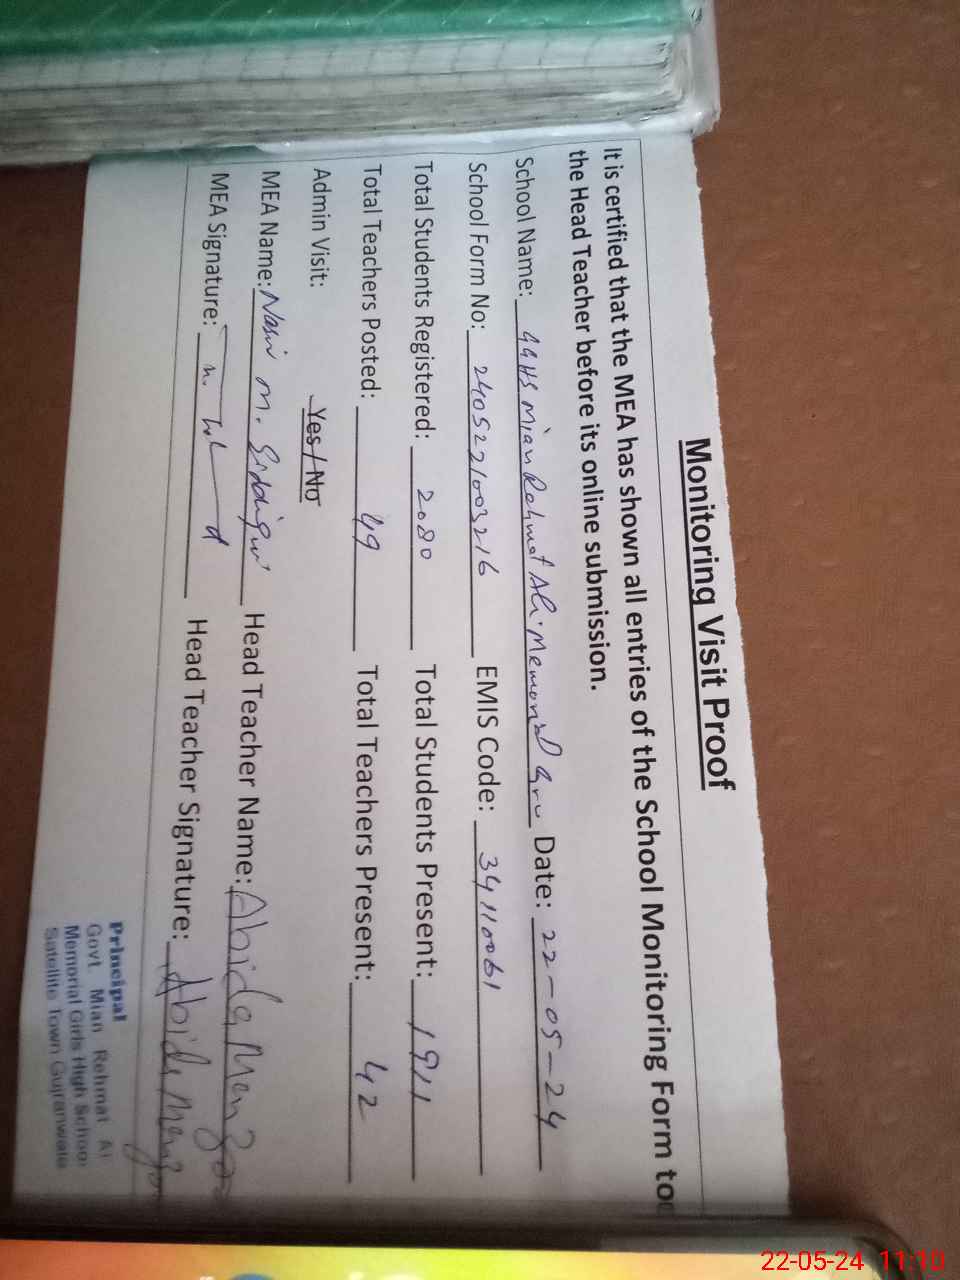 Monitoring Visit Proof
It is certified that the MEA has shown all entries of the School Monitoring Form to
the Head Teacher before its online submission.
School Name: GGHS Mian Rehmat Ali Memorial Grw Date: 22-05-24
School Form No: 2405221003216 EMIS Code: 34110061
Total Students Registered: 2080 Total Students Present: 1911
Total Teachers Posted: 49 Total Teachers Present: 42
Admin Visit: Yes / No
MEA Name: Nasir M. Siddiqui Head Teacher Name: Abida Manzoor
MEA Signature: Head Teacher Signature: Abida
Principal
Govt. Mian Rehmat Al
Memorial Girls High School
Satellite Town Gujranwala
22-05-24 11:10